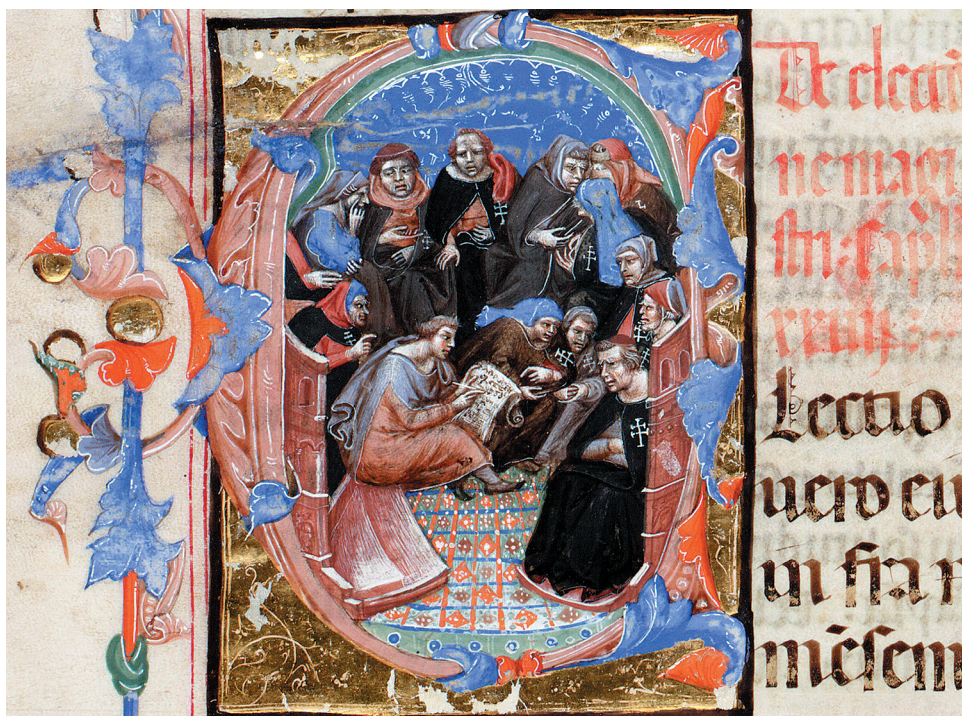 De electi
ne magi
stri: Cap̄l
Lectio
uero eiu
in fra
mēsem